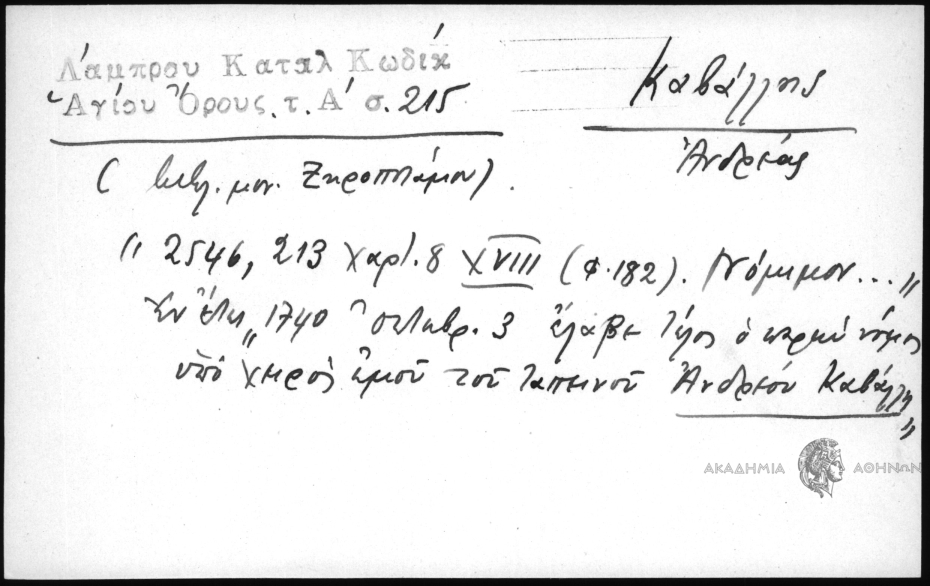 Λάμπρου Καταλ Κωδίκ
Ἁγίου Ὄρους. τ. Α' σ. 215
Καβάλλης
Ἀνδρέας
( βιβλ. μον. Ξηροποτάμου).
"2546, 213 χαρτ. 8 XVIII (φ. 182). Νόμιμον..."
Ἐν ἔτει "1740 ὀκτωβρ. 3 ἔλαβε τέλος ὁ παρὼν νόμος
ὑπὸ χειρὸς ἐμοῦ τοῦ ταπεινοῦ Ἀνδρέου Καβάλλη"
ΑΚΑΔΗΜΙΑ ΑΘΗΝΩΝ